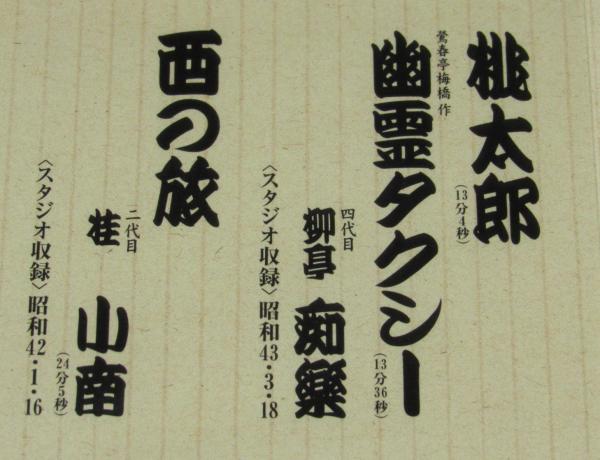 桃太郎
(13分4秒)
鶯春亭梅橋 作
幽霊タクシー
(13分36秒)
四代目
柳亭 痴楽
〈スタジオ収録〉昭和43・3・18
西の旅
二代目
桂 小南
(24分5秒)
〈スタジオ収録〉昭和42・1・16